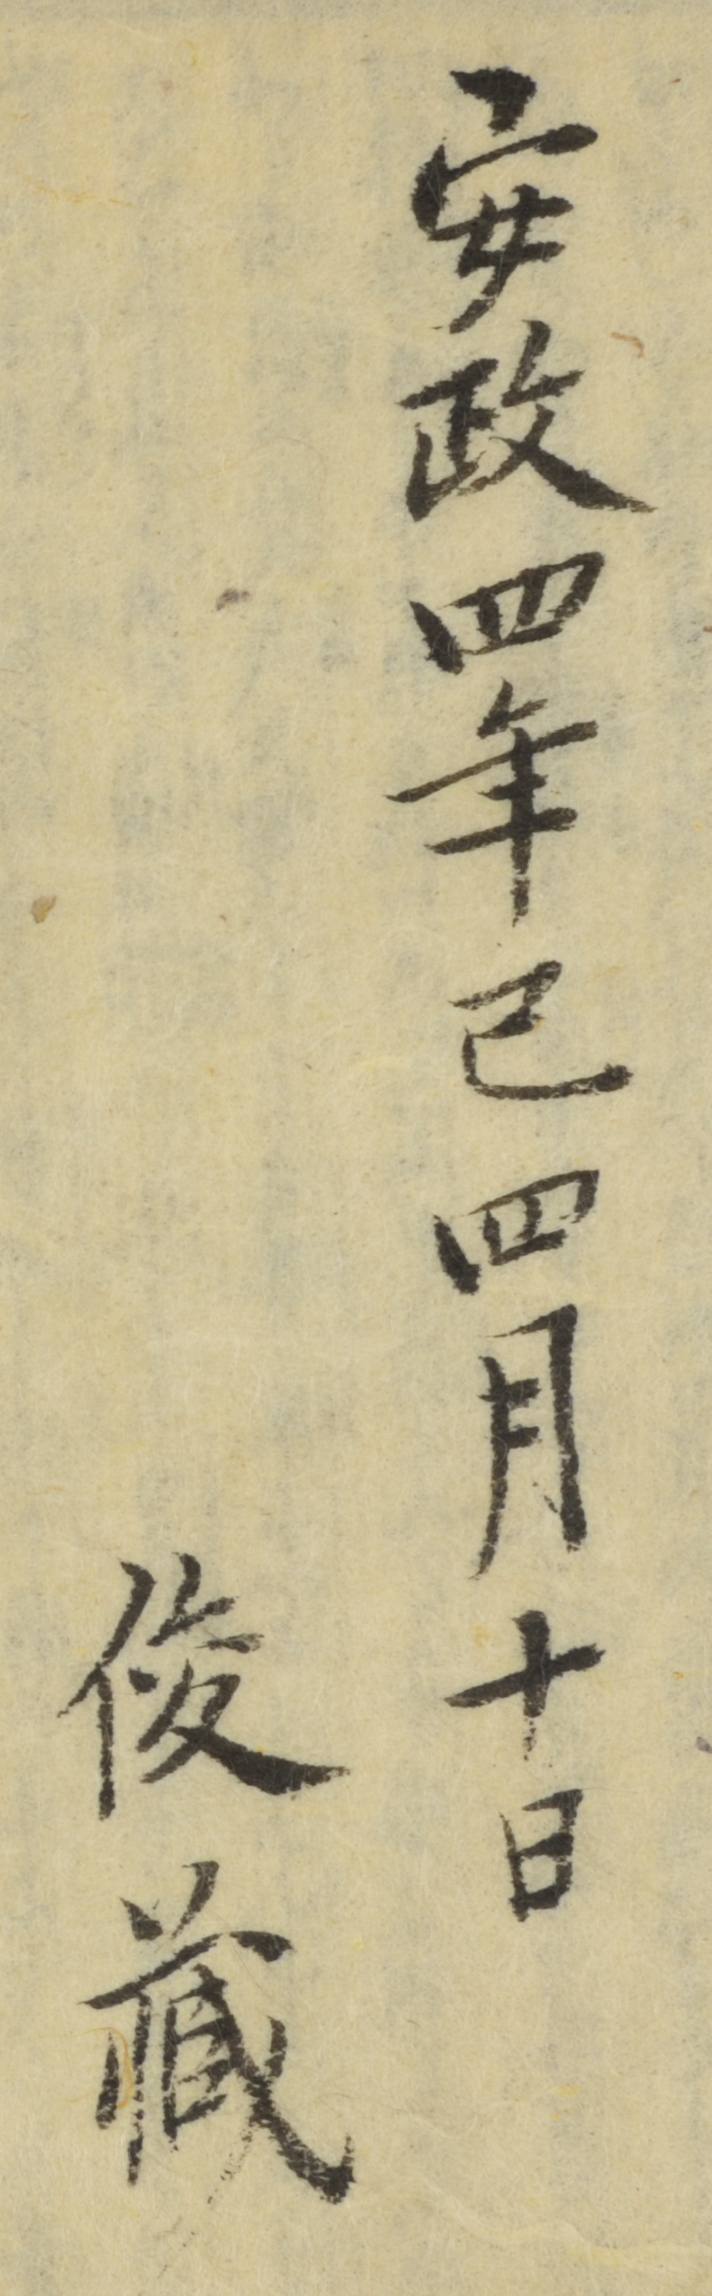 安政四年巳四月十日
俊藏